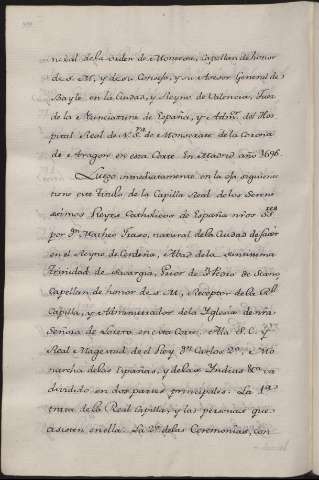 neral de la orden de Montesa, Capellan de honor
de S. M, y de su Consejo, y su Asesor General de
Bayle en la Ciudad, y Reyno de Valencia, Juez
de la Nunciatura de España, y Adm.or del Hos
pital Real de N. S.ra de Monserrate de la Corona
de Aragon en esta Corte. En Madrid año 1696.
Luego inmediatamente en la oja siguiente
tiene este titulo de la Capilla Real de los Seren
issimos Reyes Catholicos de España nros S.res
por D.n Matheo Fraso, natural de la Ciudad de
en el Reyno de Cerdeña, Abad de la Santissima
Trinidad de Sacargia, Prior de S. Pedro de
Capellan de honor de S. M, Receptor de la R.l
Capilla, y Administrador de la Iglesia de nra
Señora de Loreto en esta Corte. A la S. C. y
Real Magestad de el Rey D.n Carlos 2.o, Mo
narcha de las Españas, y de las Indias &c a
dividido en dos partes principales. La 1.a
trata de la Real Capilla, y las personas que
asisten en ella. La 2.a de las Ceremonias, con